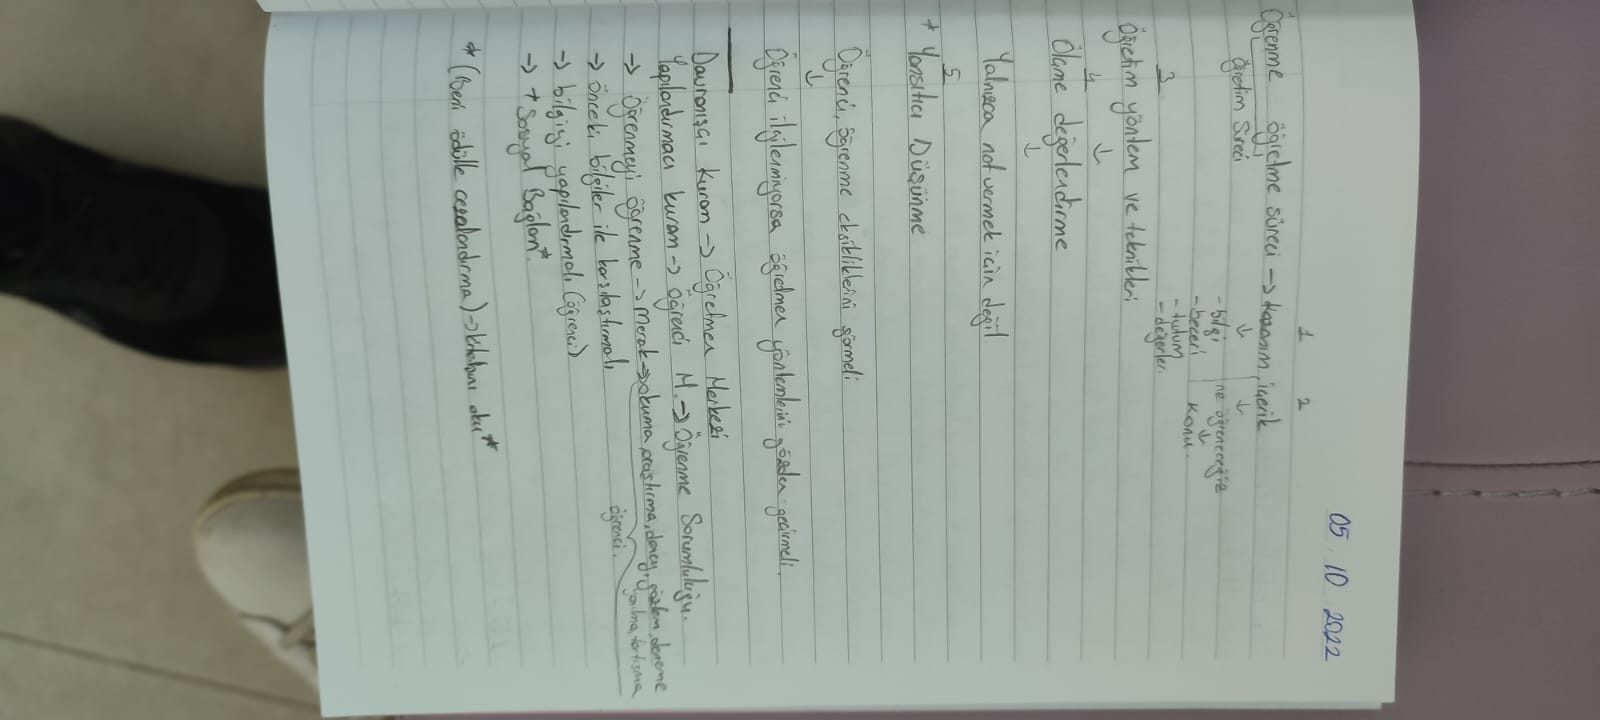 05.10 2022
1 2
Öğrenme öğretme süreci → kazanım, içerik
öğretim süreci
↓ ↓
- bilgi ne öğreneceğiz
- beceri ↓
- tutum konu.
- değerler.
3
Öğretim yöntem ve teknikleri
4 ↓
Ölçme değerlendirme
↓
Yalnızca not vermek için değil.
5
* Yansıtıcı Düşünme
Öğrenci, öğrenme eksikliklerini görmeli
↓
Öğrenci ilgilenmiyorsa öğretmen yöntemlerini gözden geçirmeli.
Davranışçı kuram → Öğretmen Merkezi
Yapılandırmacı kuram → Öğrenci M. → Öğrenme Sorumluluğu.
→ Öğrenmeyi öğrenme → Merak → okuma, araştırma, deney, gözlem, deneme
yanılma, tartışma
öğrenci.
→ önceki bilgiler ile karşılaştırmalı
→ bilgiyi yapılandırmalı (öğrenci)
→ * Sosyal Bağlam *
* (Beni ödülle cezalandırma) → kitabını oku *